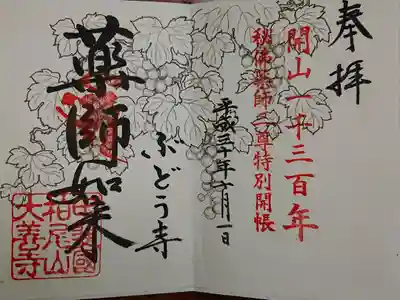 奉拝
開山一千三百年
秘佛薬師三尊特別開帳
平成三十年十月一日
ぶどう寺
薬師如来
甲斐國
柏尾山
大善寺